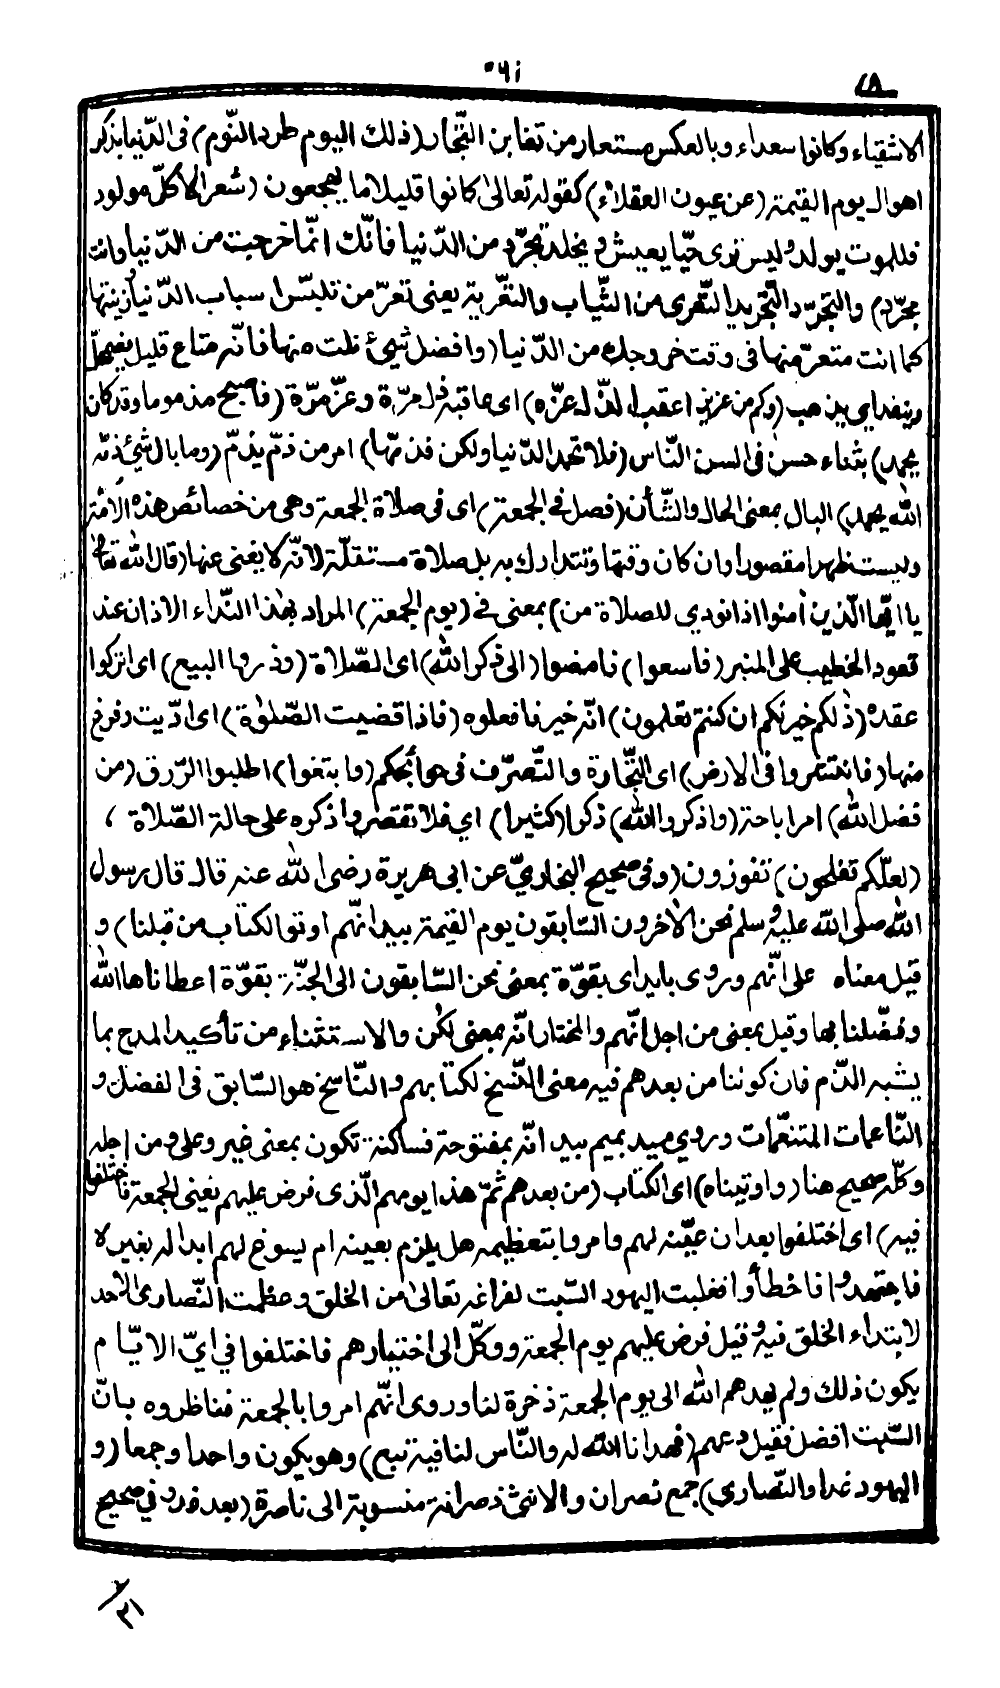 الاشقياء وكانوا سعداء وبالعكس مستعار من تغابن التّجار (ذلك اليوم طرد النّوم) فى الدّنيا بذكر
اهوال يوم القيمة (عن عيون العقلاء) كقوله تعالى كانوا قليلا ما يهجعون (شعر الا كلّ مولود
فللموت يولد وليس نرى حيّا يعيش ويخلد تجرّد من الدّنيا فانّك انّما خرجت من الدّنيا وانت
مجرّد) والتجرّد والتّجريد التّعرى من الثّياب والتّعرية يعنى تعرّ من تلبّس اسباب الدّنيا وزينتها
كما انت متعرّ منها فى وقت خروجك من الدّنيا (وافضل شيئ نلت منها فانّه متاع قليل يضمحلّ
وينفد) اى يذهب (وكم من عزيز اعقب الذّلّ عزّه) اى عاقبه ذل مرّة وعزّ مرّة (فاصبح مذموما وقد كان
يحمد) بثناء حسن فى السن النّاس (فلا تحمد الدّنيا ولكن فذمّها) امر من ذمّ يذمّ (وما بال شيئ ذمّه
الله يحمد) البال بمعنى الحال والشّأن (فصل فى الجمعة) اى فى صلاة الجمعة وهى من خصائص هذه الامّة
وليست ظهرا مقصورا وان كان وقتها وتتدارك به بل صلاة مستقلّة لانّه لا يغنى عنها (قال الله تعالى
يا ايّها الّذين اٰمنوا اذا نودي للصلاة من) بمعنى فى (يوم الجمعة) المراد بهذا النّداء الاذان عند
قعود الخطيب على المنبر (فاسعوا) فامضوا (الى ذكر الله) اى الصّلاة (وذروا البيع) اى اتركوا
عقده (ذٰلكم خير لكم ان كنتم تعلمون) انّه خير فافعلوه (فاذا قضيت الصّلوٰة) اى ادّيت وفرغ
منها (فانتشروا فى الارض) اى التّجارة والتّصرّف فى حوائجكم (وابتغوا) اطلبوا الرّزق (من
فضل الله) امر اباحة (واذكروا الله) ذكرا (كثيرا) اي فلا تقصروا ذكره على حالة الصّلاة ،
(لعلّكم تفلحون) تفوزون (وفى صحيح البخاريّ عن ابى هريرة رضى الله عنه قال قال رسول
الله صلى الله عليه وسلم نحن الاٰخرون السّابقون يوم القيمة بيد انّهم اوتوا الكتاب من قبلنا) و
قيل معناه على انّهم وروى بايد اى بقوّة بمعنى نحن السّابقون الى الجنّة بقوّة اعطاناها الله
وفضّلنا بها وقيل بمعنى من اجل انّهم والمختار انّه بمعنى لكن والاستثناء من تأكيد المدح بما
يشبه الذّم فان كوننا من بعدهم فيه معنى النّسخ لكتابهم والنّاسخ هو السّابق فى الفضل و
النّاعمات المتنعّمات وروي ميد بميم بيد انّه بمفتوحة فساكنة تكون بمعنى غير وعلى ومن اجله
وكلّه صحيح هنا (واوتيناه) اى الكتاب (من بعدهم ثمّ هذا يومهم الّذى فرض عليهم يعنى الجمعة فاختلفوا
فيه) اى اختلفوا بعد ان عيّنه لهم وامروا بتعظيمه هل يلزم بعينه ام يسوغ لهم ابداله بغيره لا
فاجتهدوا فاخطأوا فغلبت اليهود السّبت لفراغه تعالى من الخلق وعظمت النّصارى الاحد
لابتداء الخلق فيه وقيل فرض عليهم يوم الجمعة ووكّل الى اختيارهم فاختلفوا في ايّ الايّام
يكون ذلك ولم يهدهم الله الى يوم الجمعة ذخرة لنا وروى انّهم امروا بالجمعة فناظروه بانّ
السّبت افضل فقيل دعهم (فهدانا الله له والنّاس لنا فيه تبع) وهو يكون واحدا وجمعا (و
اليهود غدا والنّصارى) جمع نصران والانثى نصرانة منسوبة الى ناصرة (بعد غد وفي صحيح